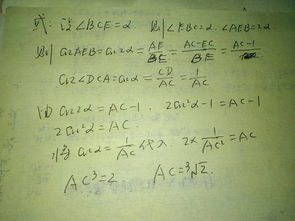 或: 设∠BCE=α 则∠EBC=α, ∠AEB=2α
则 cos∠AEB=cos2α=AE/BE=(AC-EC)/BE=(AC-1)/
cos∠DCA=cosα=CD/AC=1/AC
由 cos2α=AC-1, 2cos²α-1=AC-1
2cos²α=AC
将 cosα=1/AC 代入, 2×1/AC²=AC
AC³=2 AC=³√2.